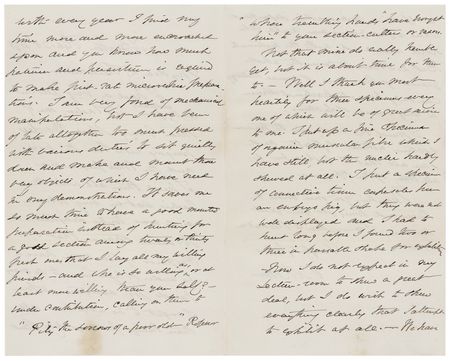 with every year I find my
time more and more encroached
upon and you know how much
patience and persistence is required
to make first rate microscopic prepara
tions. I am very fond of mechanical
manipulations, but I have been
of late altogether too much pressed
with various duties to sit quietly
down and make and mount those
very objects of which I have need
in my demonstrations. It saves me
so much time to have a good mounted
preparation instead of hunting for
a good section among twenty or thirty
fresh ones, that I lay all my willing
friends – and who is so willing, or at
least more willing than yourself? –
under contribution, calling on them to
"Pity the sorrows of a poor old" Professor
"whose trembling hands" have brought
him" to your section-cutter or razor.
Not that mine do really tremble
yet, but it is about time for them
to. — Well I thank you most
heartily for these specimens every
one of which will be of great service
to me. I put up a fine specimen
of organic muscular fibre which I
have still, but the nuclei hardly
showed at all. I put a specimen
of connective tissue corpuscles from
an embryo pig, but they were not
well displayed and I had to
hunt long before I found two or
three in passable shape for exhibition.
Now I do not expect in my
Lecture-room to show a great
deal, but I do wish to show
everything clearly that I attempt
to exhibit at all. — We have